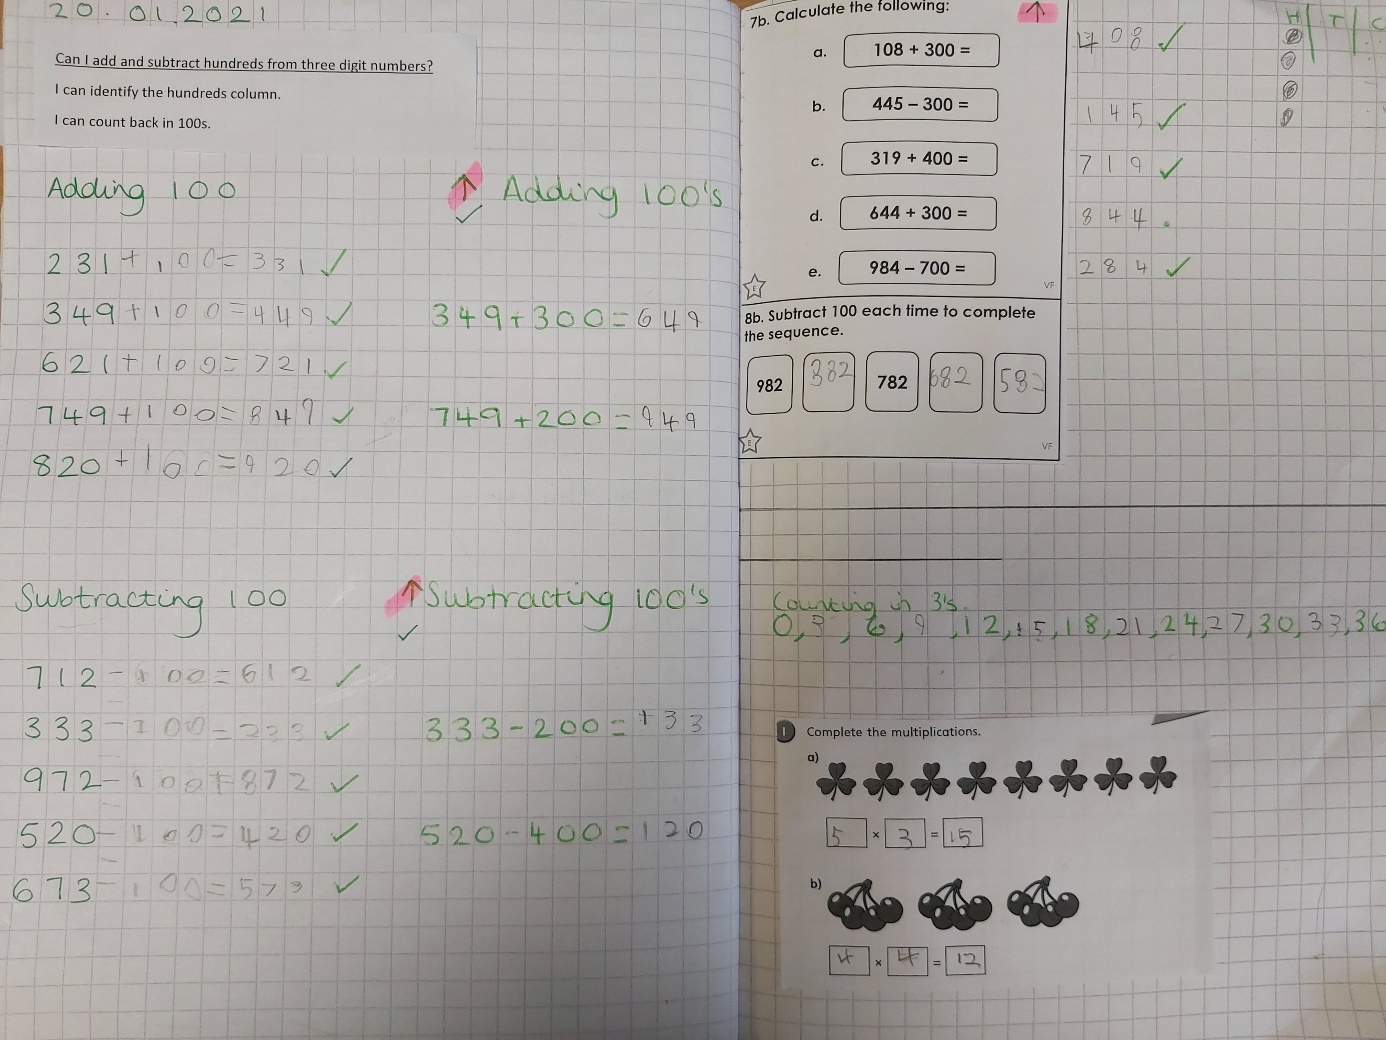 20.01.2021
Can I add and subtract hundreds from three digit numbers?
I can identify the hundreds column.
I can count back in 100s.
Adding 100
231+100=331 ✓
349+100=449 ✓
621+100=721 ✓
749+100=849 ✓
820+100=920 ✓
↑ Adding 100's
✓
349+300=649
749+200=949
Subtracting 100
712-100=612 ✓
333-100=233 ✓
972-100=872 ✓
520-100=420 ✓
673-100=573 ✓
↑ Subtracting 100's
✓
333-200=133
520-400=120
7b. Calculate the following: ↑
H T
a. 108 + 300 = 408 ✓
b. 445 – 300 = 145 ✓
c. 319 + 400 = 719 ✓
d. 644 + 300 = 844 .
e. 984 – 700 = 284 ✓
E VF
8b. Subtract 100 each time to complete
the sequence.
982 382 782 682 582
E VF
Counting in 3's.
0, 3, 6, 9, 12, 15, 18, 21, 24, 27, 30, 33, 36
1 Complete the multiplications.
a)
5 × 3 = 15
b)
4 × 4 = 12